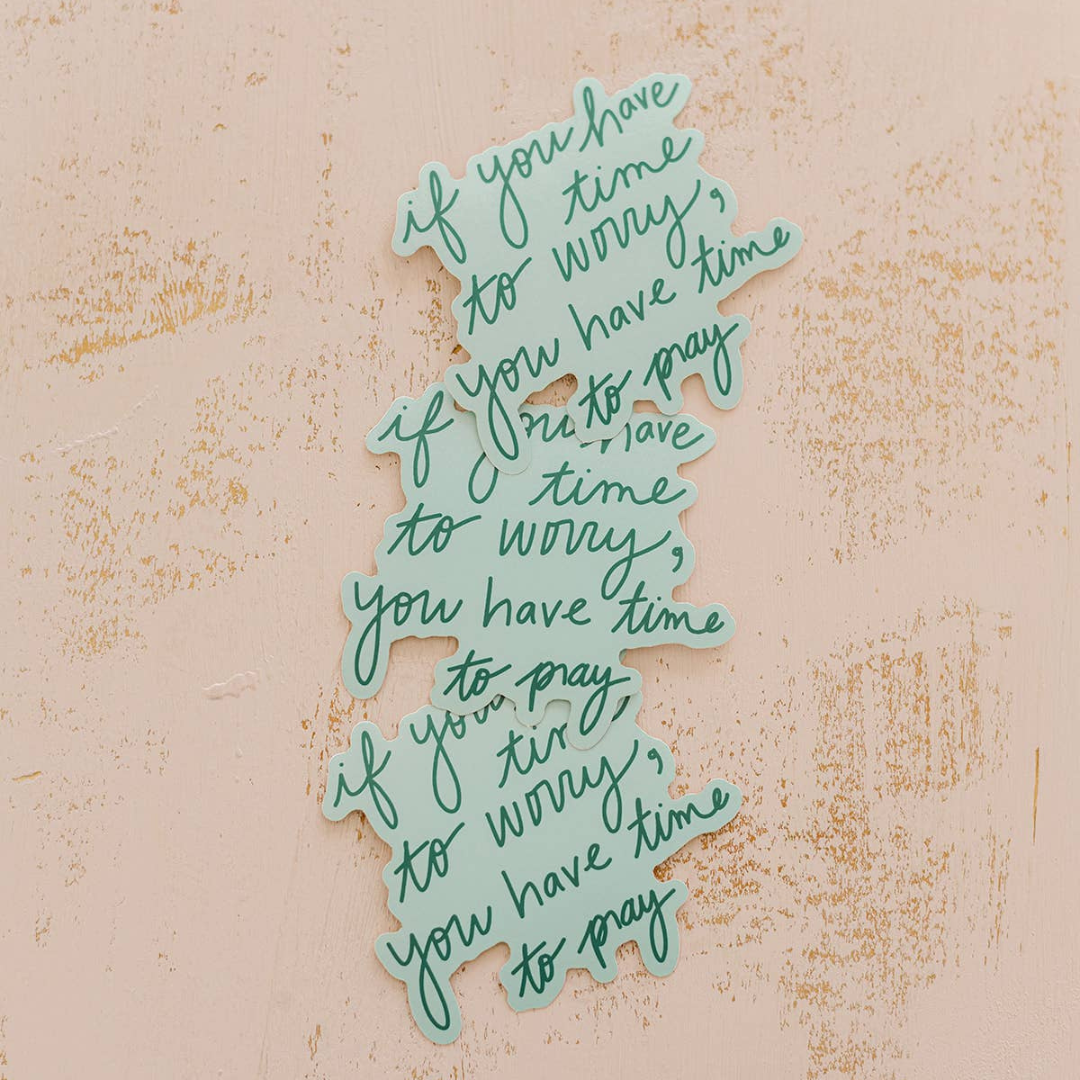 if you have
time
to worry,
you have time
to pray
if you have
time
to worry,
you have time
to pray
if you
to worry,
you have time
to pray